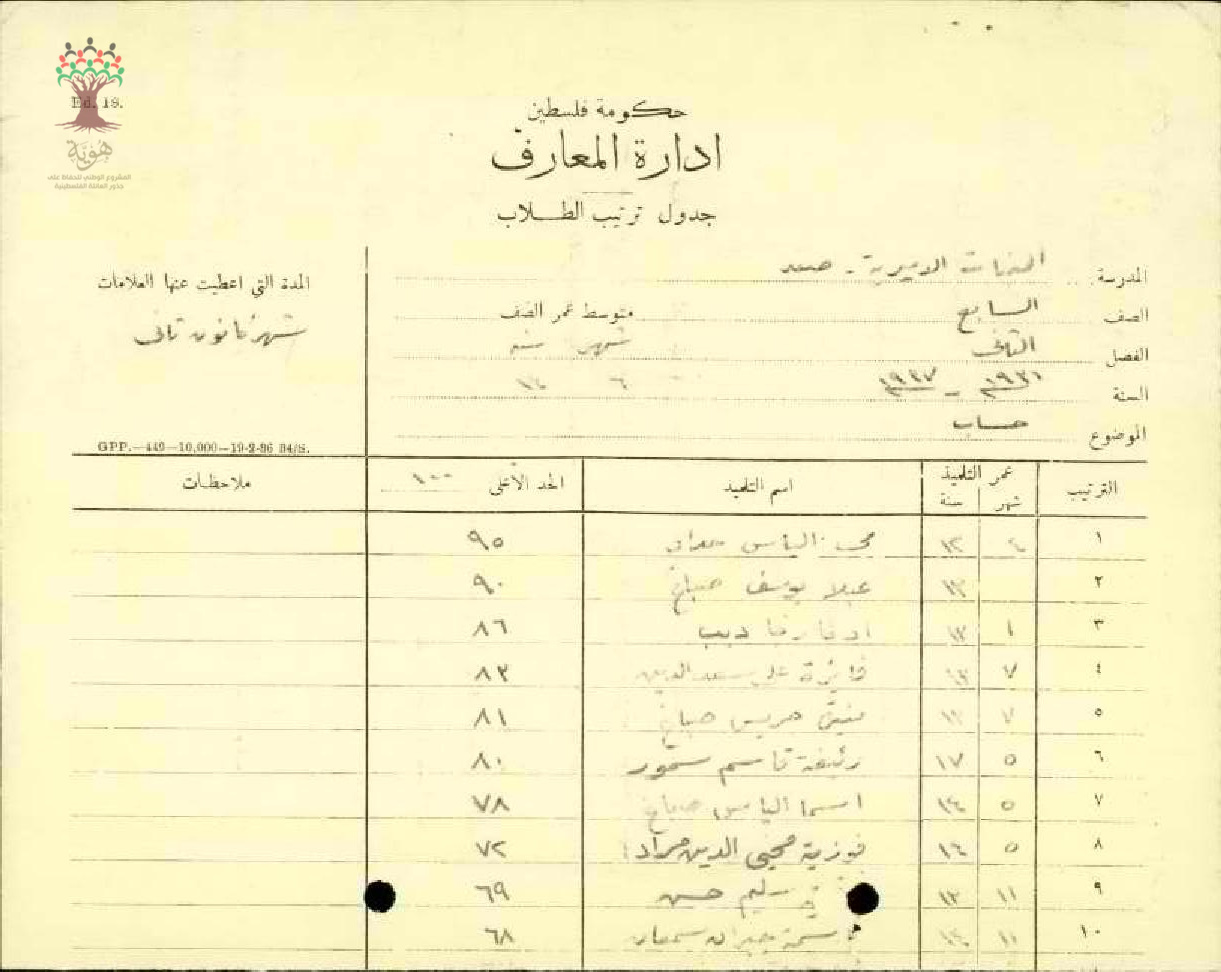 Ed. 19.
هوية
المشروع الوطني للحفاظ على
جذور العائلة الفلسطينية
حكومة فلسطين
ادارة المعارف
جدول ترتيب الطلاب
المدرسة البنات الاميرية - صفد
الصف السابع متوسط عمر الصف
الفصل الثاني شهر سنة
السنة ١٩٣٦ - ١٩٣٧ ٦ ١٤
الموضوع حساب
المدة التي اعطيت عنها العلامات
شهر كانون ثاني
GPP.—449—10,000—19-2-36 84/S.
الترتيب عمر التلميذ اسم التلميذ الحد الأعلى ١٠٠ ملاحظات
شهر سنة
١ ٤ ١٣ الياس ٩٥
٢ ١٣ عبلا يوسف صباغ ٩٠
٣ ١ ١٣ رضا ديب ٨٦
٤ ٧ فائزة علي سعد الدين ٨٣
٥ ٧ صباغ ٨١
٦ ٥ ١٧ رئيفة قاسم سمور ٨٠
٧ ٥ ١٤ اسما الياس صباغ ٧٨
٨ ٥ ١٤ فوزية محيي الدين مراد ٧٢
٩ ١١ ١٣ سليم حسن ٦٩
١٠ ١١ جبران سمعان ٦٨